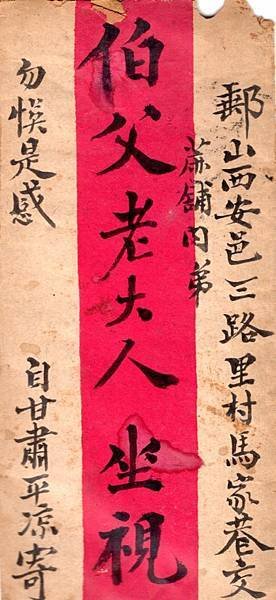 郵山西安邑三路里村馬家巷交
舖內弟
伯父老大人坐視
勿悞是感
自甘肅平凉寄